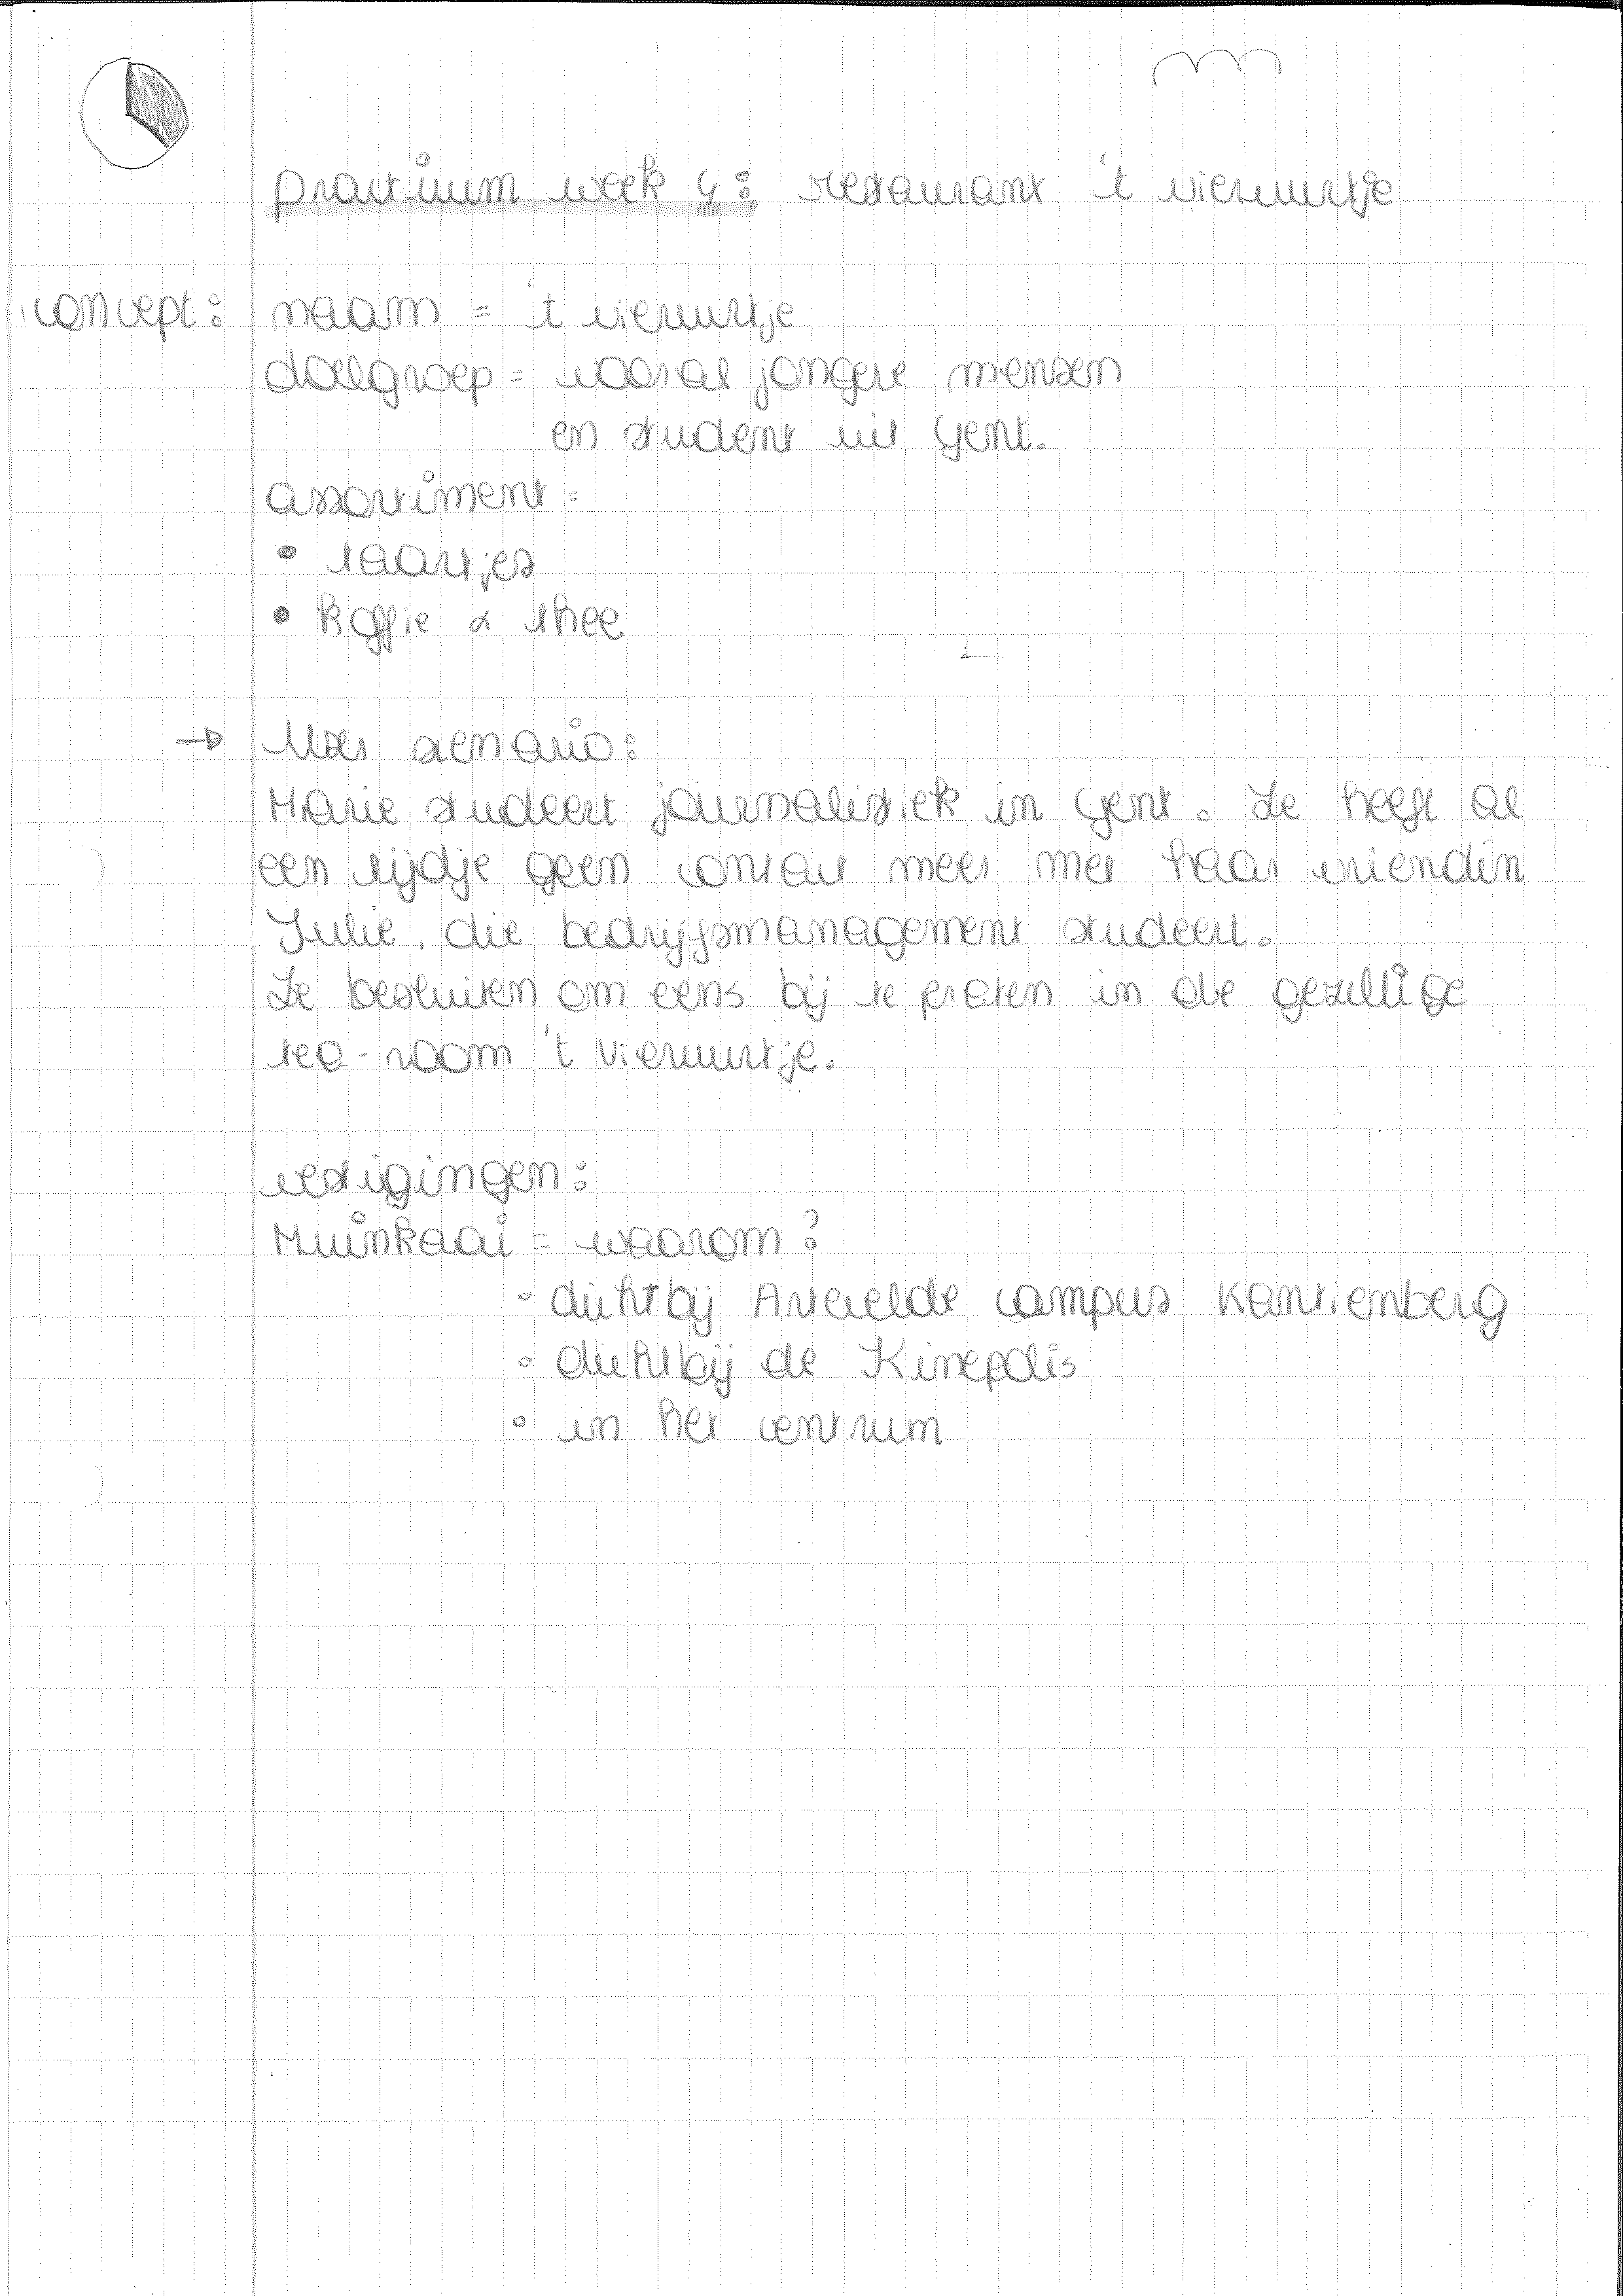 practicum week 4: restaurant 't vieruurtje
concept: naam = 't vieruurtje
doelgroep = vooral jongere mensen
en student uit Gent.
assortiment =
• taartjes
• koffie & thee
→ User scenario:
Marie studeert journalistiek in Gent. Ze heeft al
een tijdje geen contact meer met haar vriendin
Julie, die bedrijfsmanagement studeert.
Ze besluiten om eens bij te praten in de gezellige
tea-room 't vieruurtje.
vestigingen:
Muinkaai = waarom?
• dichtbij Artevelde campus Kantienberg
• dichtbij de Kinepolis
• in het centrum